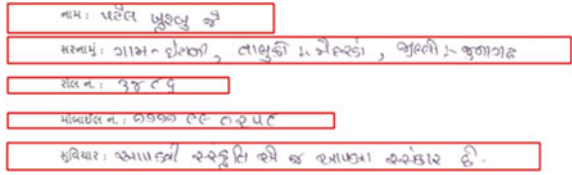 નામ: પટેલ ખુશ્બુ જે
સરનામું: ગામ - , તાલુકો :- મેંદરડા , જીલ્લો :- જુનાગઢ
રોલ નં.: ૩૪૮૬
મોબાઈલ નં.:
સુવિચાર: આપણી સંસ્કૃતિ એ જ આપણા સંસ્કાર છે.